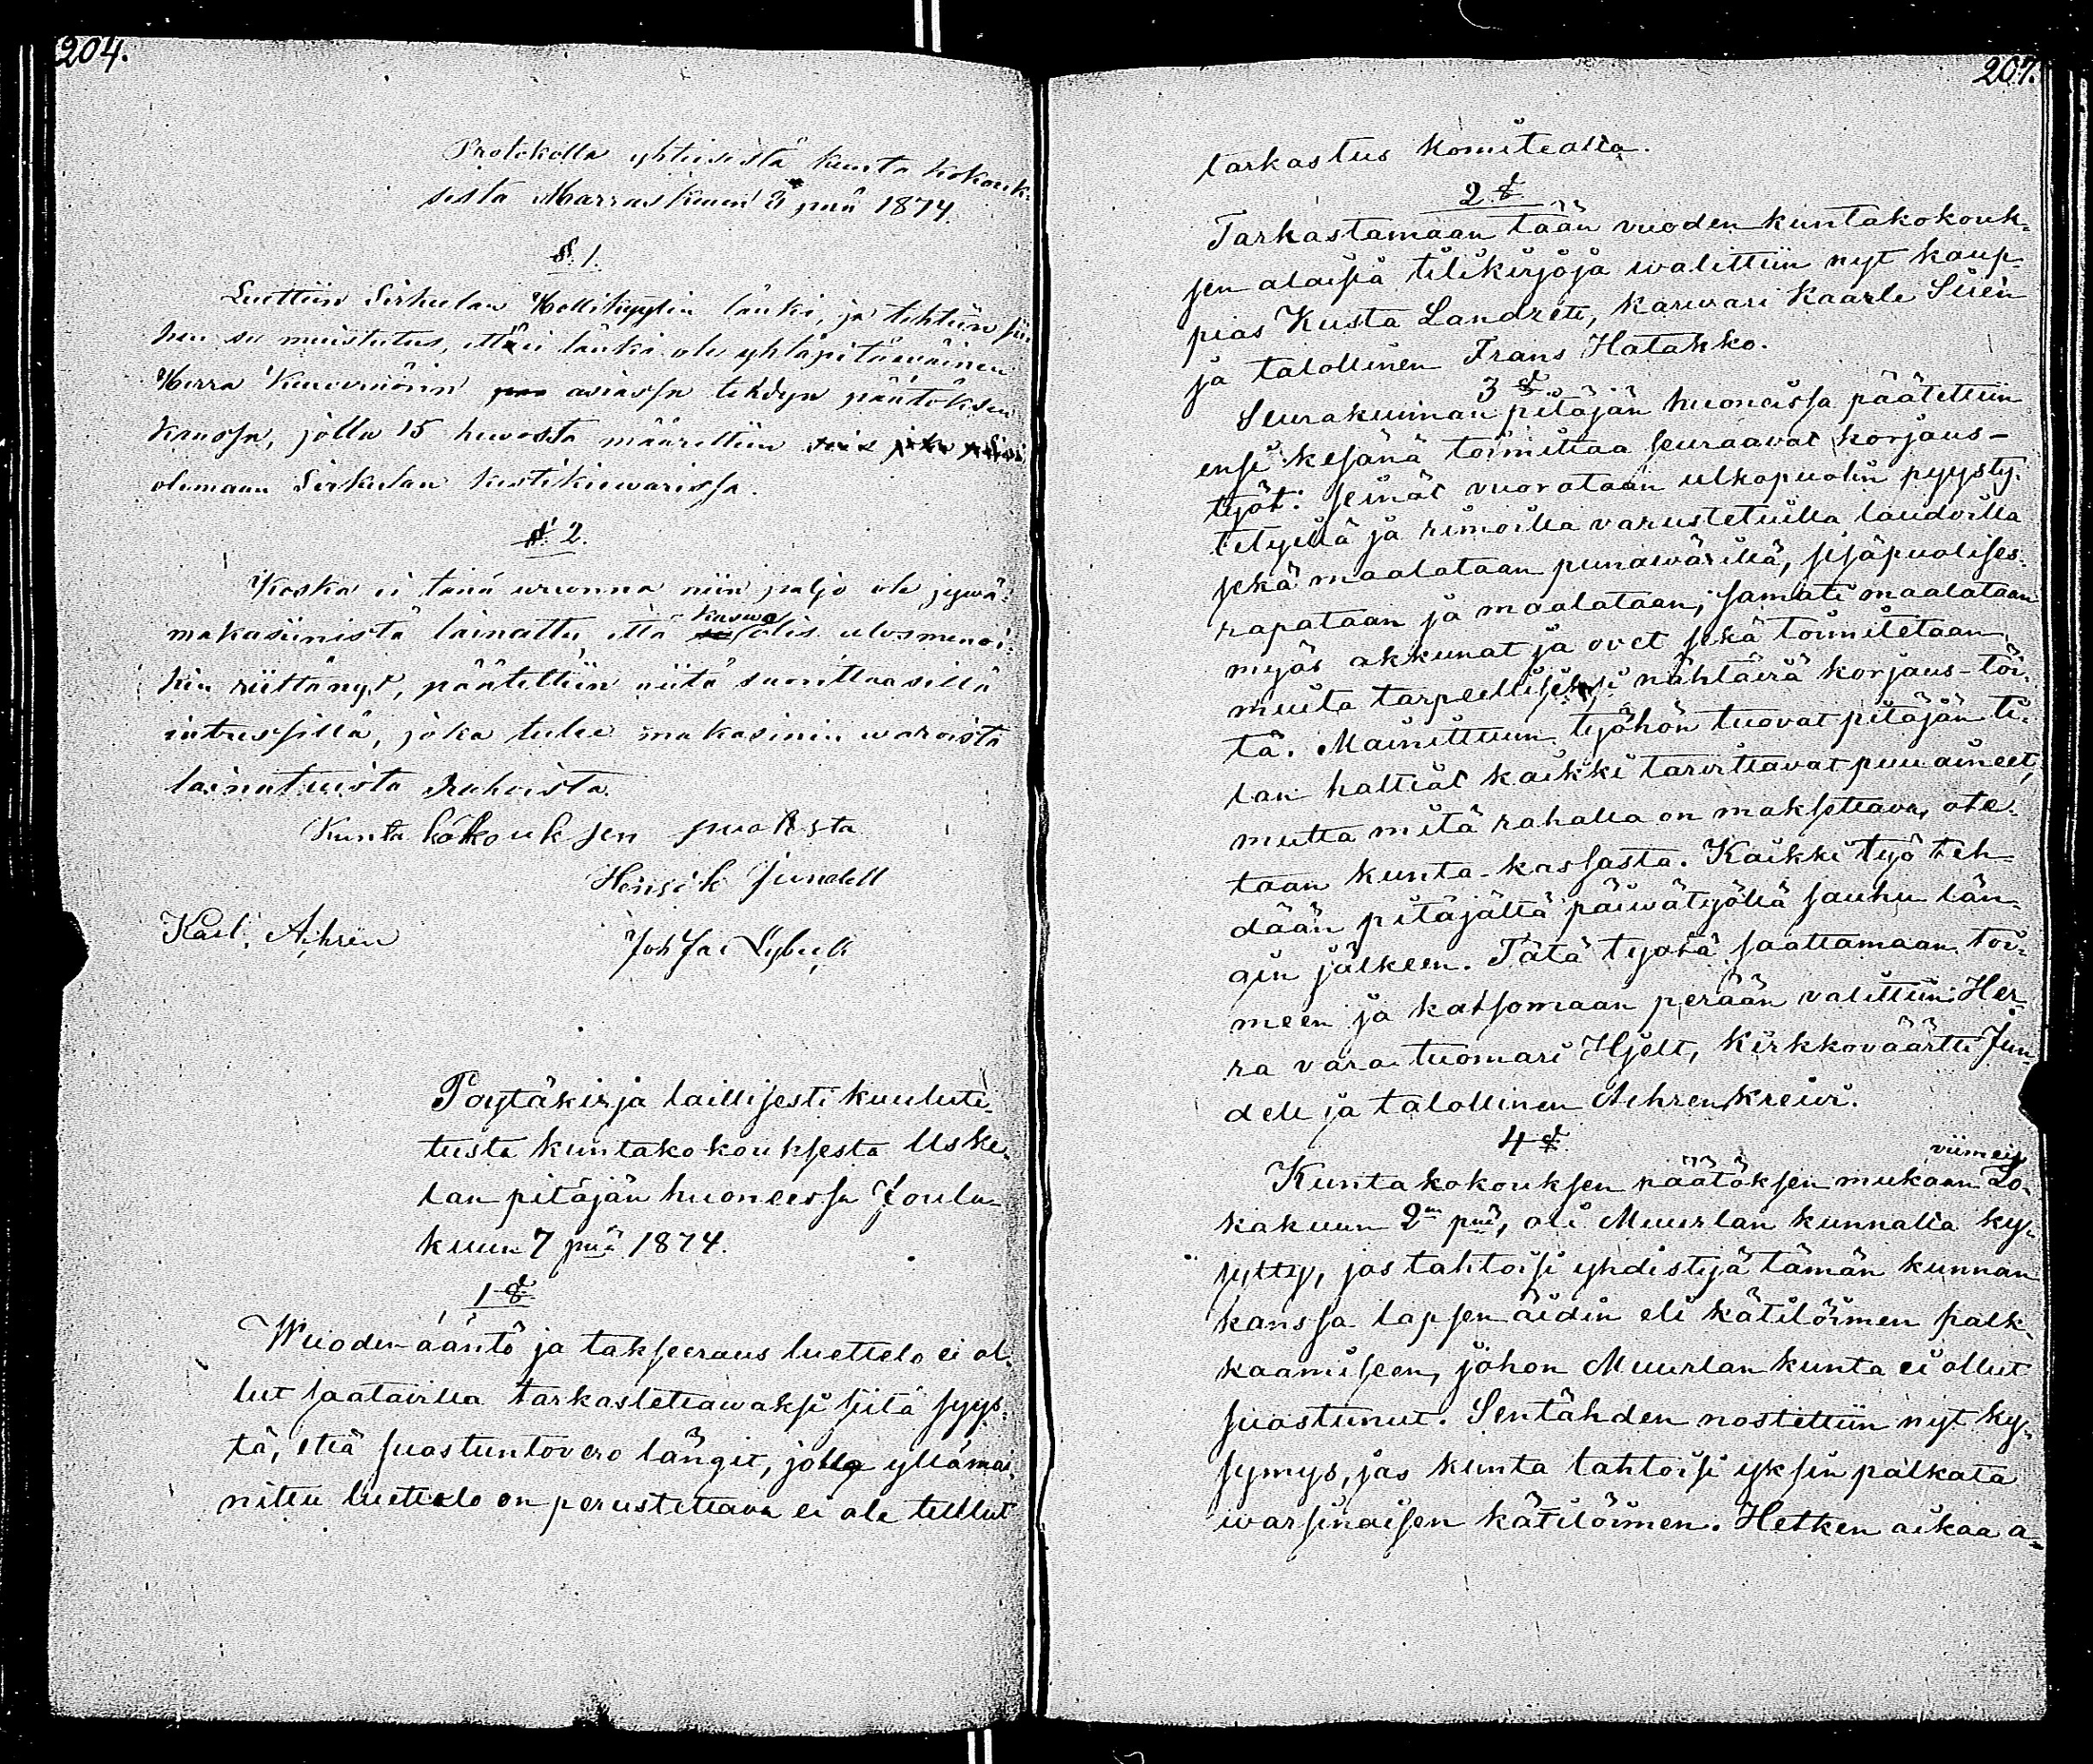 204.
Protokolla yhteisestä kunta kokouk-
sesta Marraskuun 3 pnä 1874.
§ 1.
Luettiin Sirkulan Hollikyytin länki, ja tehtiin sii-
hen se muistutus, ettei länki ole yhtäpitäwäinen
Herra Kuwernörin asiassa tehdyn päätöksen
kanssa, jolla 15 hewosta määrättiin
olemaan Sirkulan kestikiewarissa.
§ 2.
Koska ei tänä wuonna niin paljo ole jywä-
makasiinista lainattu, että kaswo olis ulosmenoi-
hin riittänyt, päätettiin niitä suorittaa sillä
intressillä, joka tulee makasinin waroista
lainatuista Rahoista.
Kunta kokouksen puolesta
Henrik Jundell
Karl Ahren
Joh Jac Nybeck
Pöytäkirja laillisesti kuulute-
tusta kuntakokouksesta Uske-
lan pitäjän huoneessa Joulu-
kuun 7 pnä 1874.
1 §
Wuoden ääntö ja takseeraus luettelo ei ol-
lut saatavilla tarkastettawaksi siitä syys-
tä, että suostuntovero längit, jolle yllämai-
nittu luettelo on perustettava ei ole tullut
207.
tarkastus komitealta.
2 §
Tarkastamaan tään vuoden kuntakokouk-
sen alaisia tilikirjoja walittiin nyt kaup-
pias Kusta Landrén, karwari Kaarle Sirén
ja talollinen Frans Hatakko.
3 §
Seurakunnan pitäjän huoneissa päätettiin
ensi kesänä toimittaa seuraavat korjaus-
työt: seinät vuorataan ulkopuolin pyysty-
tetyillä ja rimoilla varustetuilla laudoilla
sekä maalataan punawärillä, sisäpuolises-
rapataan ja maalataan; samate maalataan
myös akkunat ja ovet sekä toimitetaan
muita tarpeelliseksi nähtäviä korjaus-töi-
tä. Mainittuun työhön tuovat pitäjän ti-
lan haltiat kaikki tarvittavat puuaineet,
mutta mitä rahalla on maksettava, ote-
taan kunta-kassasta. Kaikki työ teh-
dään pitäjältä päiwätyöllä sauhu län-
gin jälkeen. Tätä työtä saattamaan toi-
meen ja katsomaan perään valittiin Her-
ra varatuomari Hjelt, Kirkkoväärtti Jun-
dell ja talollinen Ahren Kreivi.
4 §
viimeis
Kuntakokouksen päätöksen mukaan Lo-
kakuun 2m pnä, oli Muurlan kunnalta ky-
sytty, jos tahtoisi yhdistyä tämän kunnan
kanssa lapsen äidin eli kätilöimen palk-
kaamiseen, johon Muurlan kunta ei ollut
suostunut. Sentähden nostettiin nyt ky-
symys, jos kunta tahtoisi yksin palkata
warsinaisen kätilöimen. Hetken aikaa a-